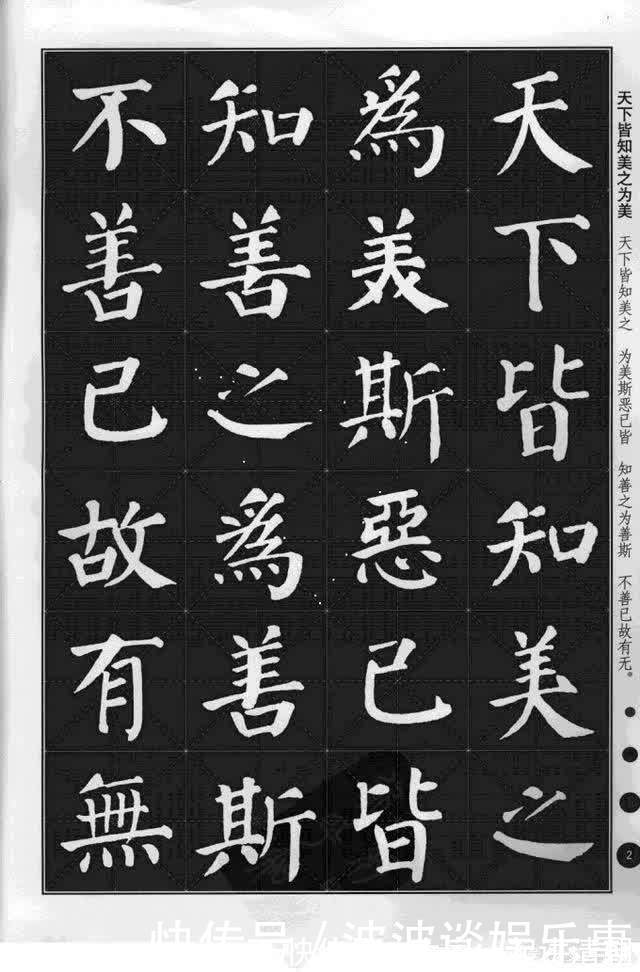 天下皆知美之
為美斯惡已皆
知善之為善斯
不善已故有無
天下皆知美之为美
天下皆知美之 为美斯恶已皆 知善之为善斯 不善已故有无。
2
快传号/波波谈娱乐事